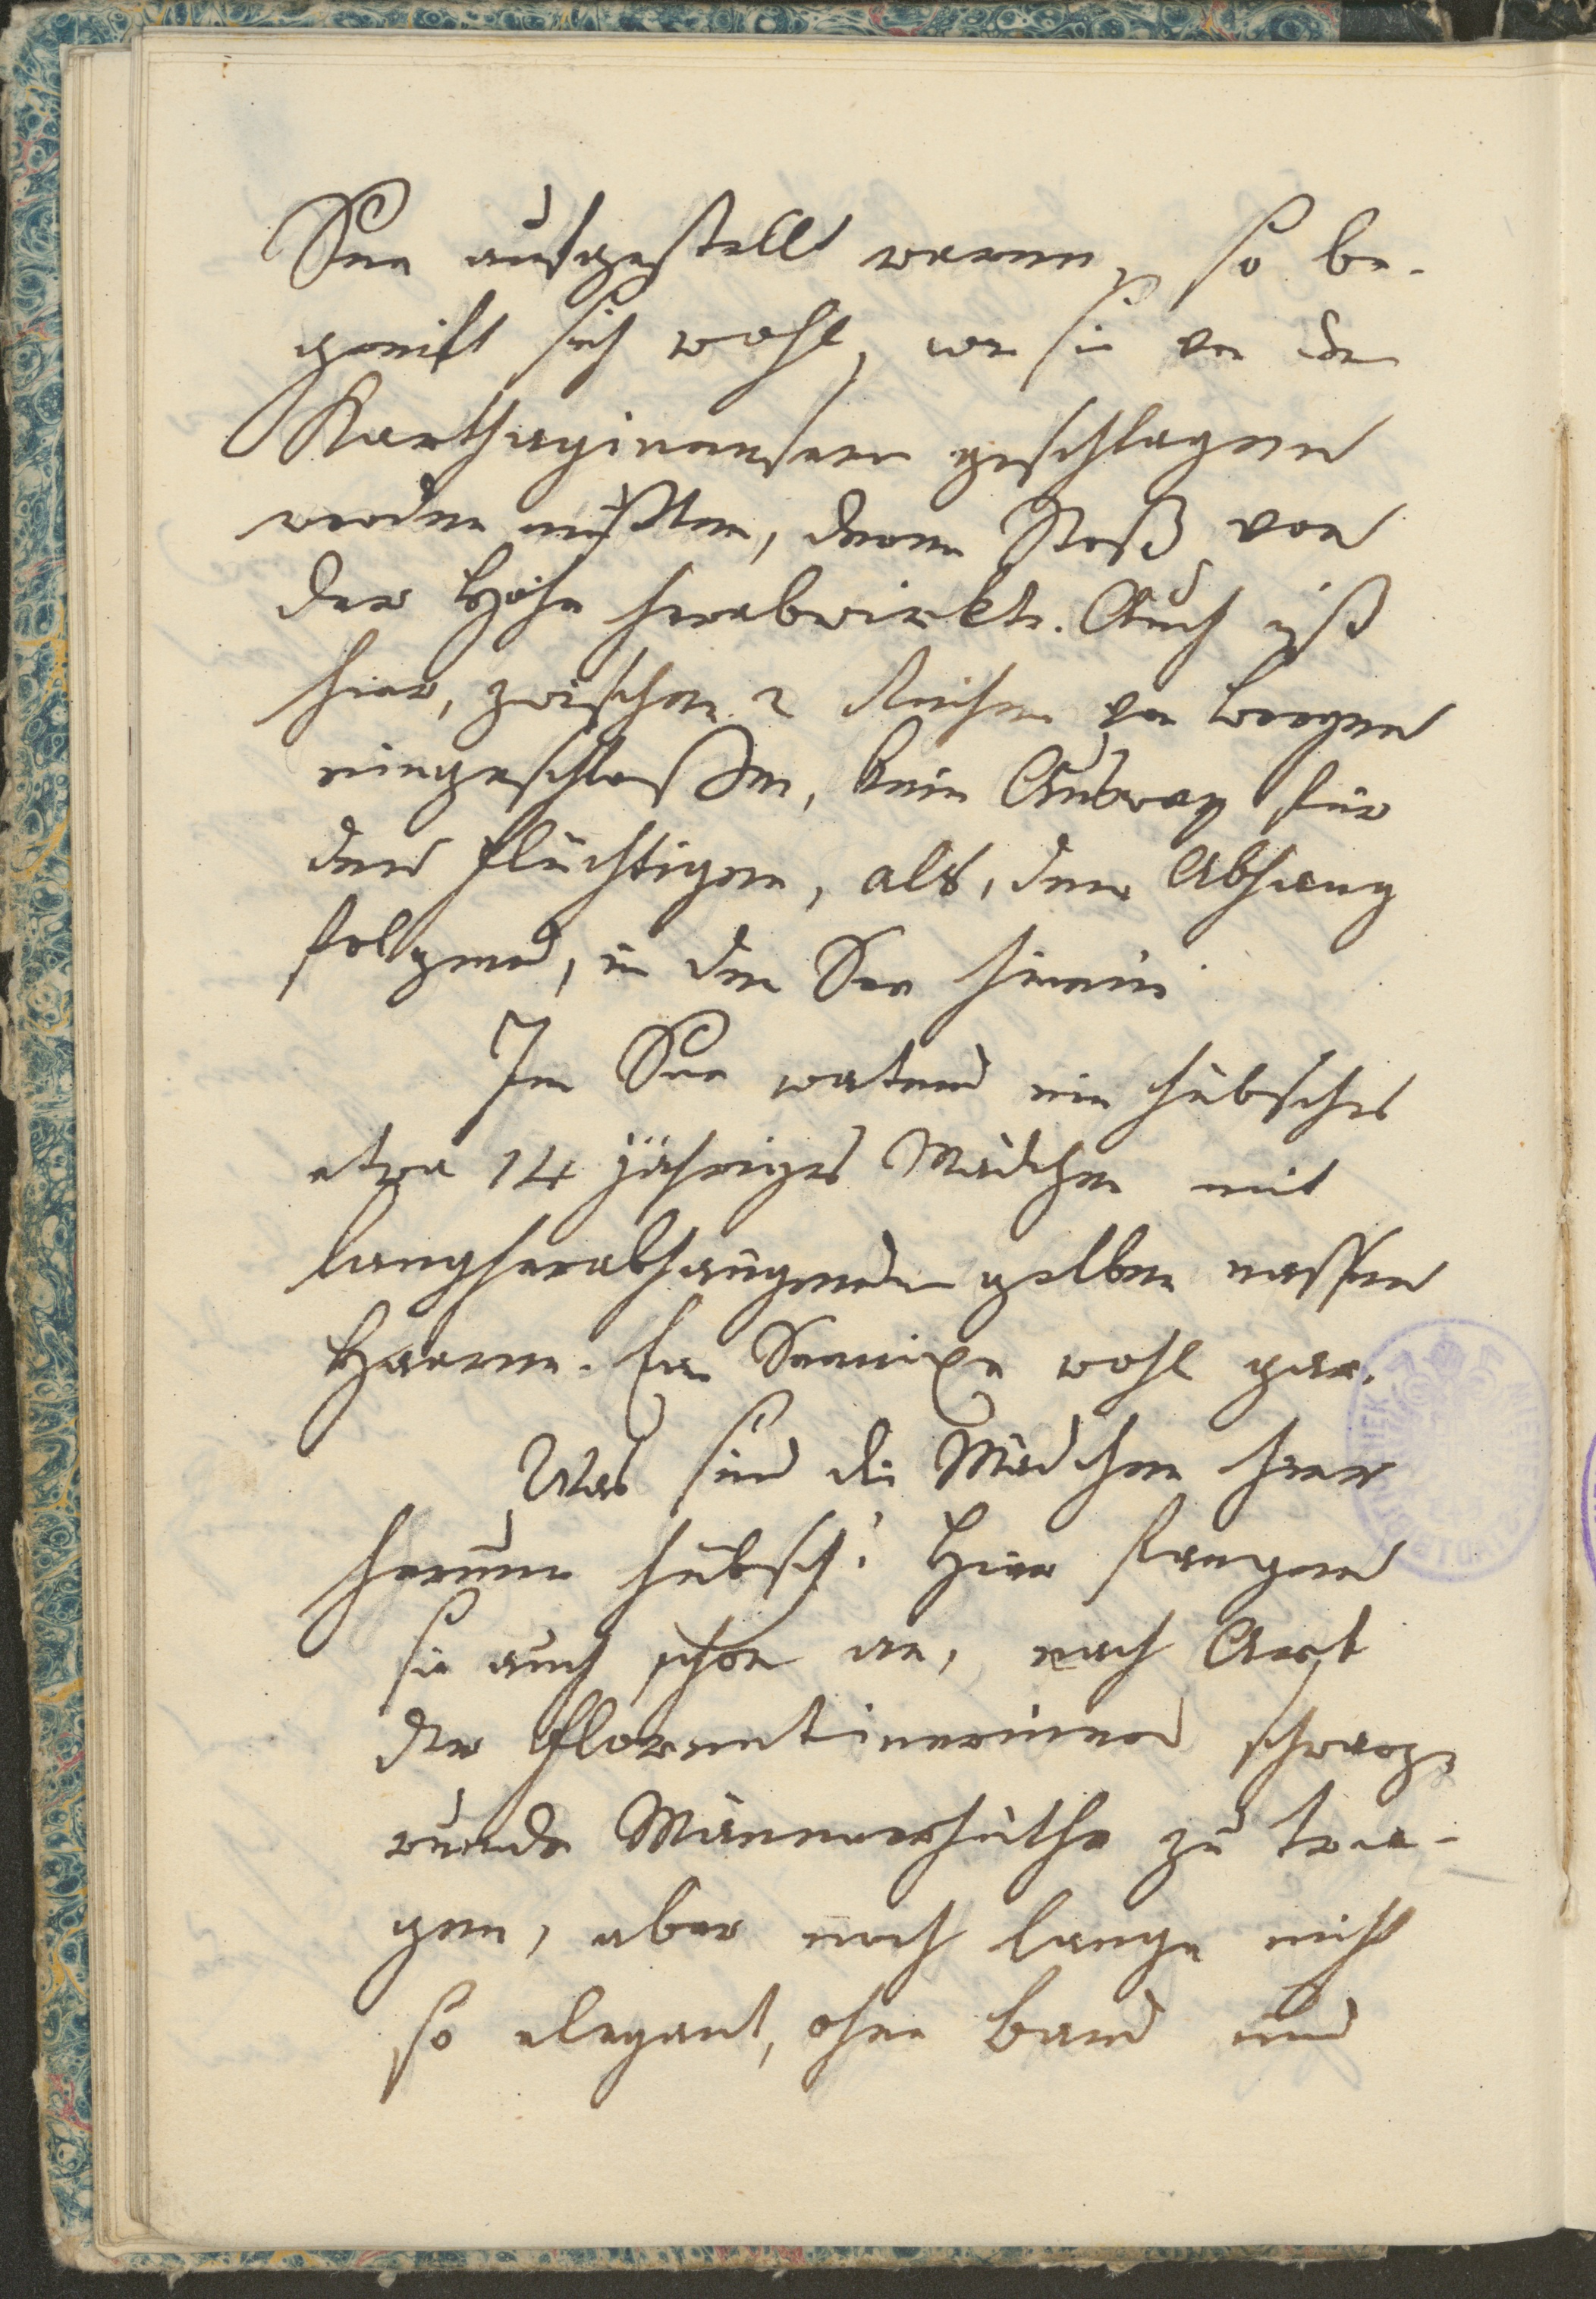 See aufgestellt waren, so be-
greift sich wohl, wie sie von den
Karthaginensern geschlagen
werden mußten, deren Stoß von
der Höhe herabwirkte. Auch ist
hier, zwischen 2 Reihen von Bergen
eingeschloßen, kein Ausweg für
den flüchtigen, als, dem Abhang
folgend, in den See hinein
Im See watend ein hübsches
etwa 14 jähriges Mädchen mit
langherabhängenden gelben nassen
Haaren. Eine Seenixe wohl gar.
Was sind die Mädchen hier
herum hübsch! Hier fangen
sie auch schon an, nach Art
der Florentinerinnen schwarze
runde Männerhüthe zu tra-
gen, aber noch lange nicht
so elegant, ohne Band und